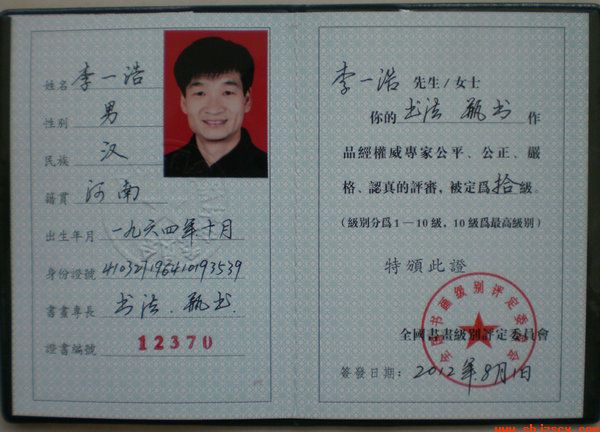 姓名 李一浩
性別 男
民族 汉
籍貫 河南
出生年月 一九六四年十月
身份證號
書畫專長 书法.瓶书.
證書編號 12370
李一浩 先生/女士
你的 书法 瓶书 作
品經權威專家公平、公正、嚴
格、認真的評審，被定爲拾級。
(級別分爲1—10級，10級爲最高級別)
特頒此證
全國書畫級別評定委員會
全国书画级别评定委员会
簽發日期：2012年.8月1日